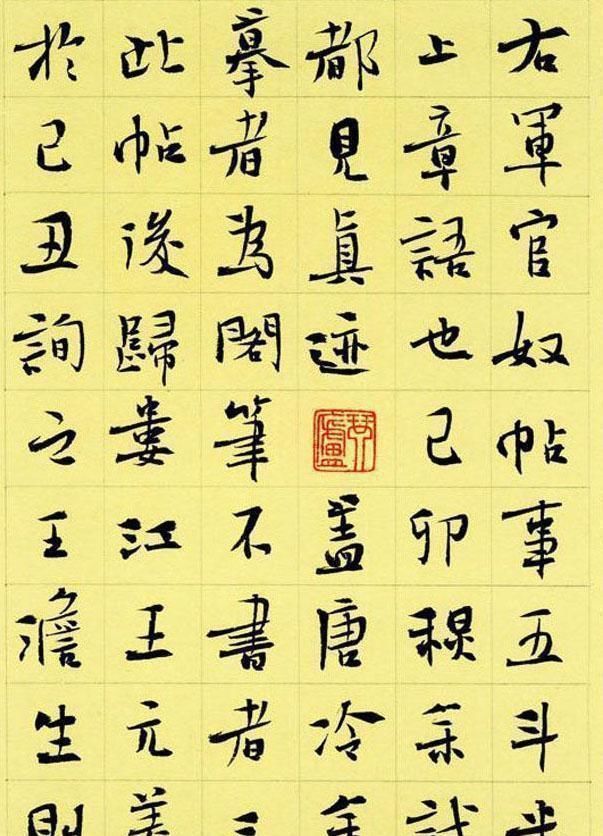 右軍官奴帖事五斗米
上章語也己卯秋余試
都見眞迹盖唐冷金
摹者為閣筆不書者三
此帖後歸婁江王元美
於己丑詢之王澹生則